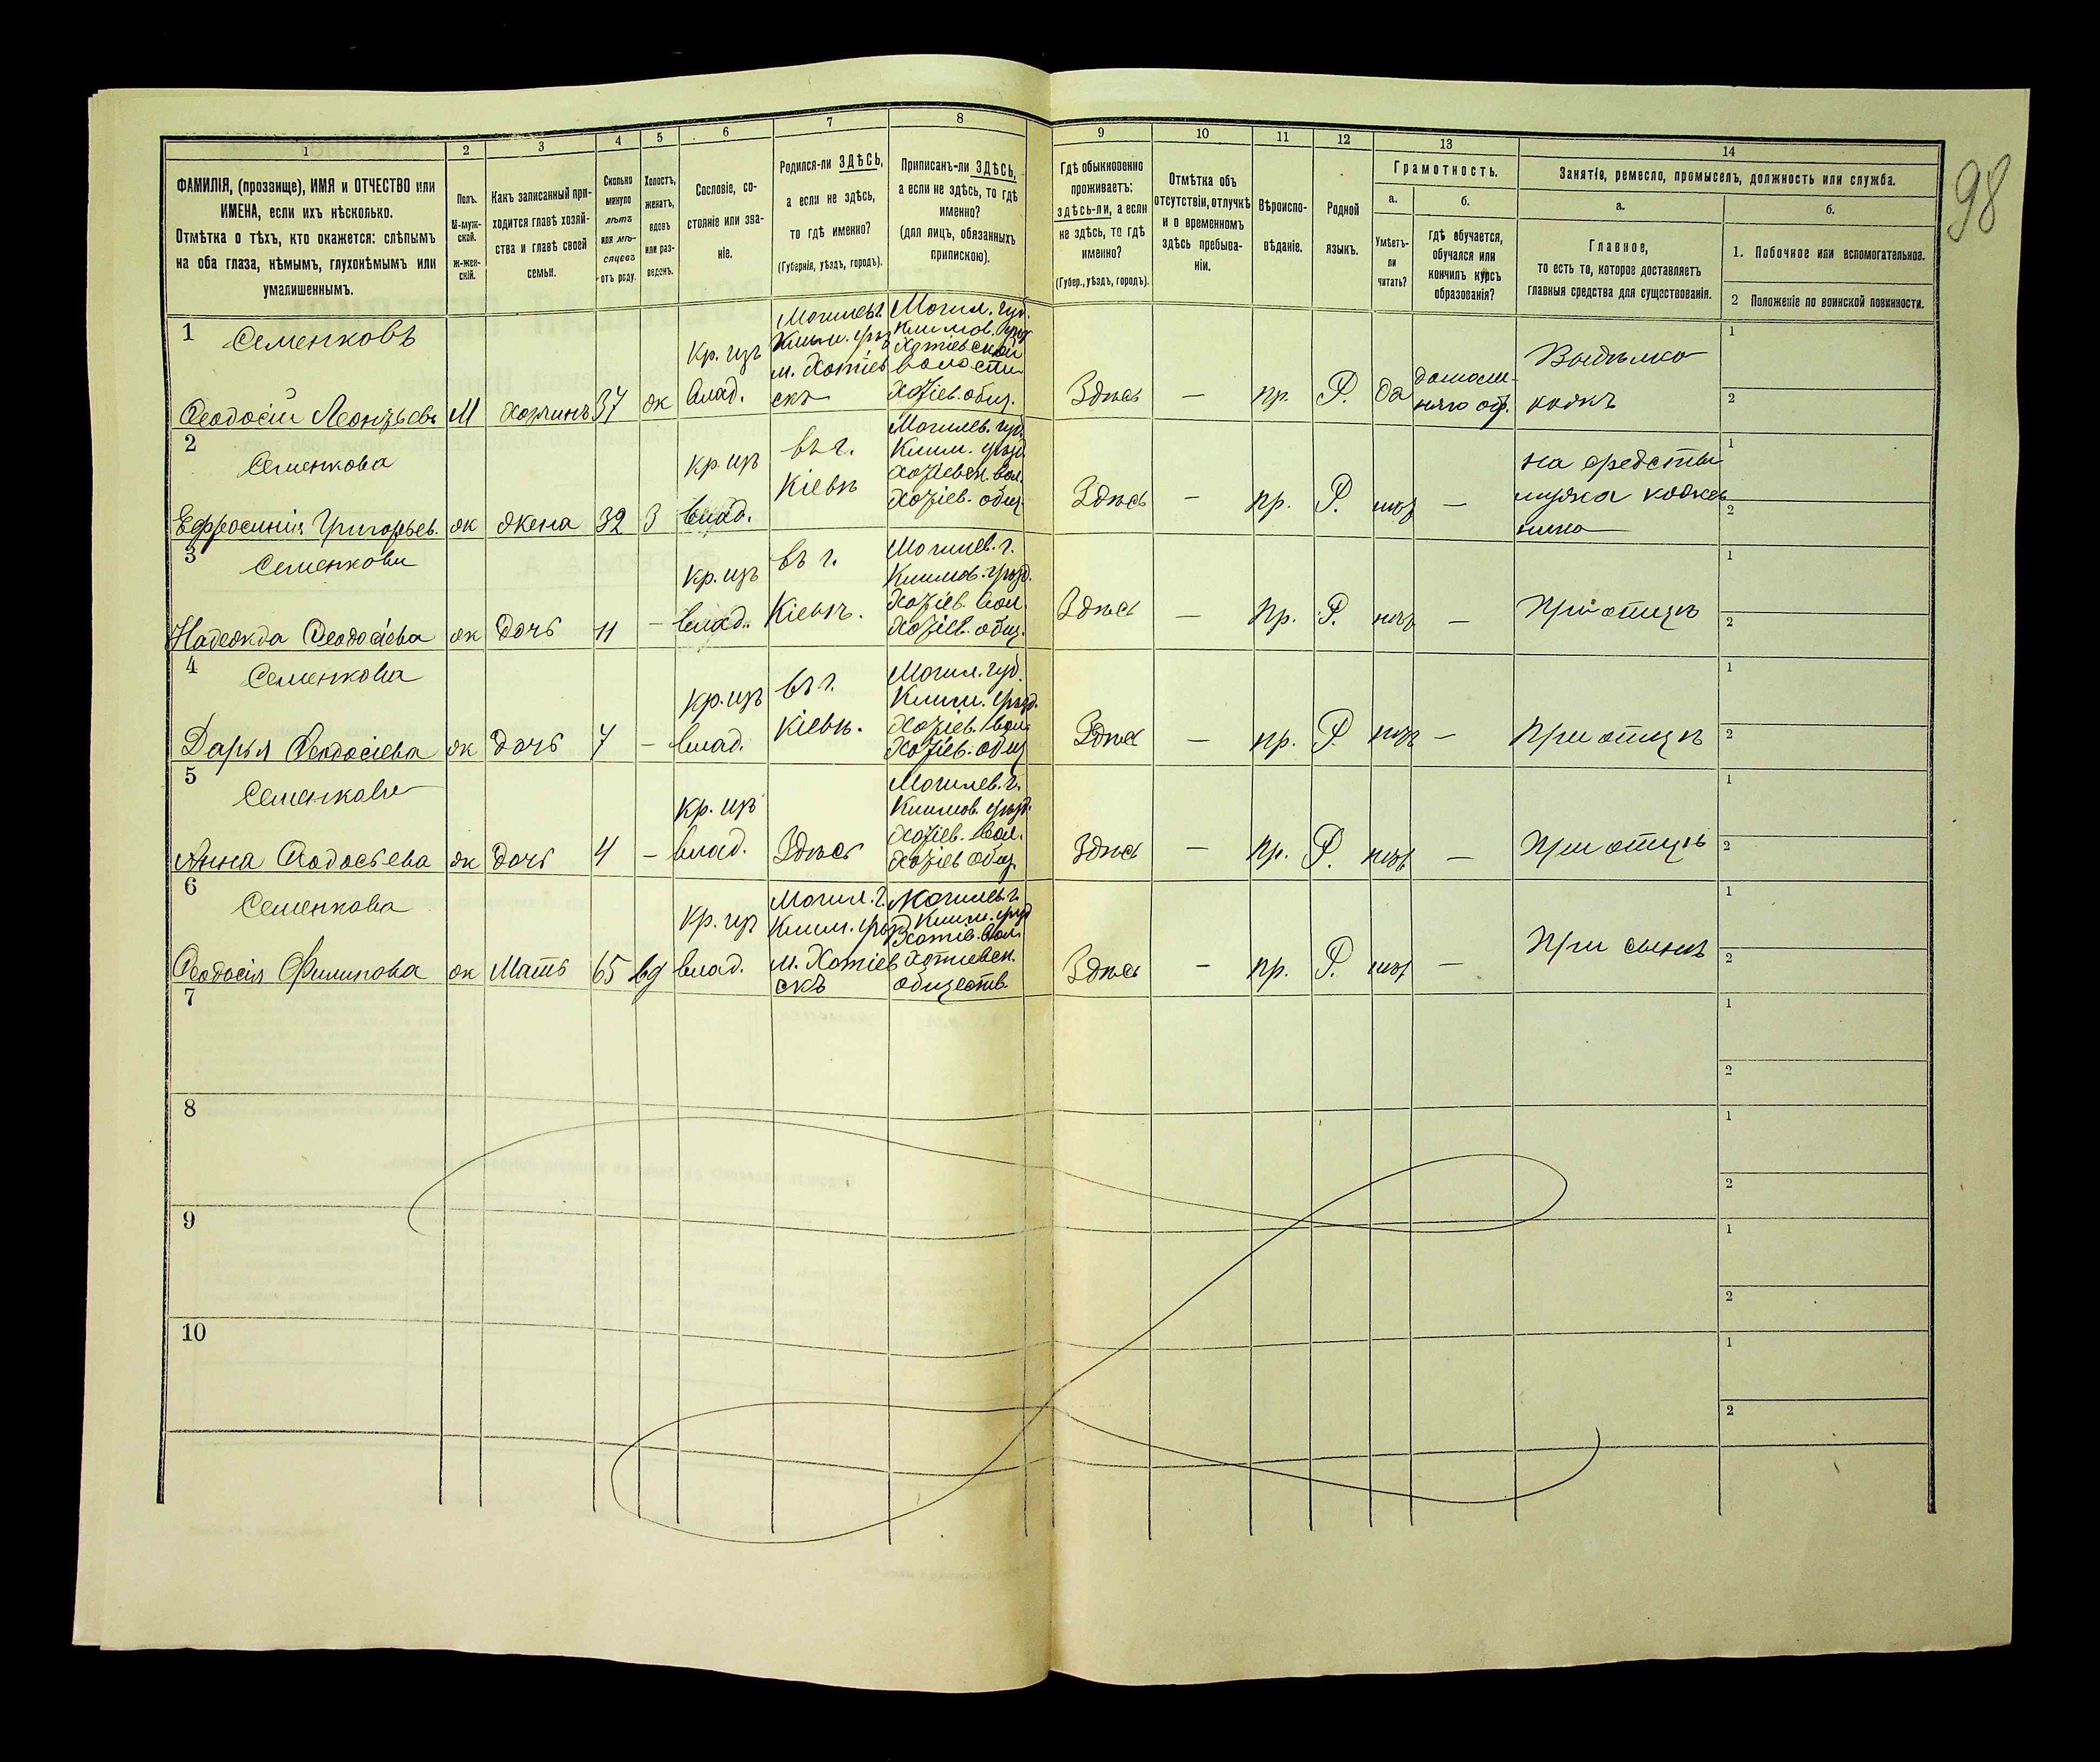 98
1
2
3
4
5
6
7
8
9
10
11
12
13
14
ФАМИЛІЯ, (прозвище), ИМЯ и ОТЧЕСТВО или
ИМЕНА, если ихъ нѣсколько.
Отмѣтка о тѣхъ, кто окажется: слѣпымъ
на оба глаза, нѣмымъ, глухонѣмымъ или
умалишеннымъ.
Полъ.
М-муж-
ской.
Ж-жен-
скій.
Какъ записанный при-
ходится главѣ хозяй-
ства и главѣ своей
семьи.
Сколько
минуло
лѣтъ
или мѣ-
сяцевъ
отъ роду.
Холостъ,
женатъ,
вдовъ
или раз-
веденъ.
Сословіе, со-
стояніе или зва-
ніе.
Родился-ли ЗДѢСЬ,
а если не здѣсь,
то гдѣ именно?
(Губернія, уѣздъ, городъ).
Приписанъ-ли ЗДѢСЬ,
а если не здѣсь, то гдѣ
именно?
(для лицъ, обязанныхъ
припискою).
Гдѣ обыкновенно
проживаетъ:
здѣсь-ли, а если
не здѣсь, то гдѣ
именно?
(Губер., уѣздъ, городъ).
Отмѣтка объ
отсутствіи, отлучкѣ
и о временномъ
здѣсь пребыва-
ніи.
Вѣроиспо-
вѣданіе.
Родной
языкъ.
Грамотность.
а.
Умѣетъ-
ли
читать?
б.
гдѣ обучается,
обучался или
кончилъ курсъ
образованія?
Занятіе, ремесло, промыселъ, должность или служба.
а.
Главное,
то есть то, которое доставляетъ
главныя средства для существованія.
б.
1. Побочное или вспомогательное.
2 Положеніе по воинской повинности.
1
Семенковъ
Феодосій Леонтьевъ
М
хозяинъ
37
ж
кр. изъ
влад.
Могилев.
Клим. уѣз
м. Хотіев
скъ
Могил. губ.
Климов. уѣзд
Хотіевской
волости
Хотіев. общ.
Здѣсь
—
пр.
Р.
Да
домаш-
няго об.
Выдѣлка
кожъ
1
2
2
Семенкова
Ефросинія Григорьев.
ж
жена
32
З
кр. из
влад.
въ г.
Кіевѣ
Могилев. губ.
Клим. уѣзд
Хотіевск. вол.
Хотіев. общ.
Здѣсь
—
пр.
Р.
нѣт
—
на средства
мужа кожев
ника
1
2
3
Семенкова
Надежда Феодосіева
ж
дочь
11
—
кр. изъ
влад.
въ г.
Кіевѣ.
Могилев. г.
Климов. уѣзд.
Хотіев. вол.
Хотіев. общ.
Здѣсь
—
пр.
Р.
нѣт
—
При отцѣ
1
2
4
Семенкова
Дарья Феодосіева
ж
дочь
7
—
кр. изъ
влад.
въ г.
Кіевѣ.
Могил. губ.
Клим. уѣзд.
Хотіев. вол.
Хотіев. общ
Здѣсь
—
пр.
Р.
нѣт
—
При отцѣ
1
2
5
Семенкова
Анна Феодосьева
ж
дочь
4
—
кр. изъ
влад.
Здѣсь
Могилев. г.
Климов. уѣзд.
Хотіев. вол.
Хотіев общ.
Здѣсь
—
пр.
Р.
нѣт
—
При отцѣ
1
2
6
Семенкова
Феодосія Филипова
ж
Мать
65
вд
кр. из
влад.
Могил. г.
Клим. уѣзд
м. Хотіев
скъ
Могилев. г.
Клим. уѣзд
Хотіев. вол.
Хотіевск.
обществ.
Здѣсь
—
пр.
Р.
нѣт
—
При сынѣ
1
2
7
1
2
8
1
2
9
1
2
10
1
2